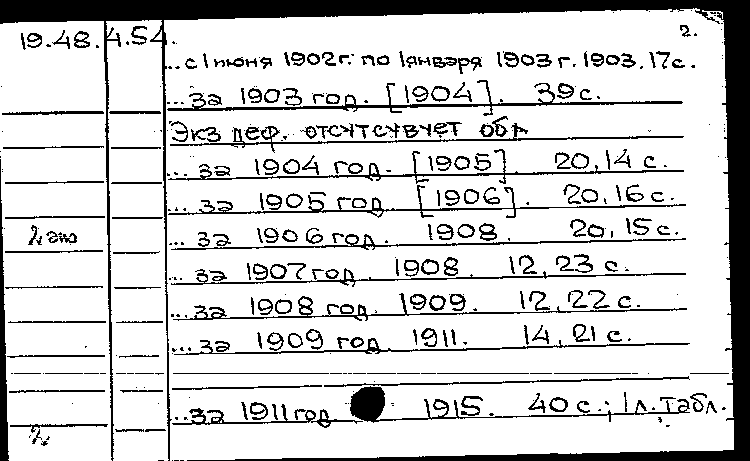 2.
19.48.4.54.
...с 1 июня 1902г. по 1 января 1903 г. 1903. 17с.
...за 1903 год. [1904]. 39с.
Экз деф. отсутствует обл
...за 1904 год. [1905]. 20,14 с.
...за 1905 год [1906]. 20,16с.
2 экз ...за 1906 год. 1908. 20,15с.
...за 1907 год. 1908. 12,23 с.
...за 1908 год. 1909. 12,22с.
...за 1909 год. 1911. 14,21с.
...за 1911 год 1915. 40с.; 1л. табл.